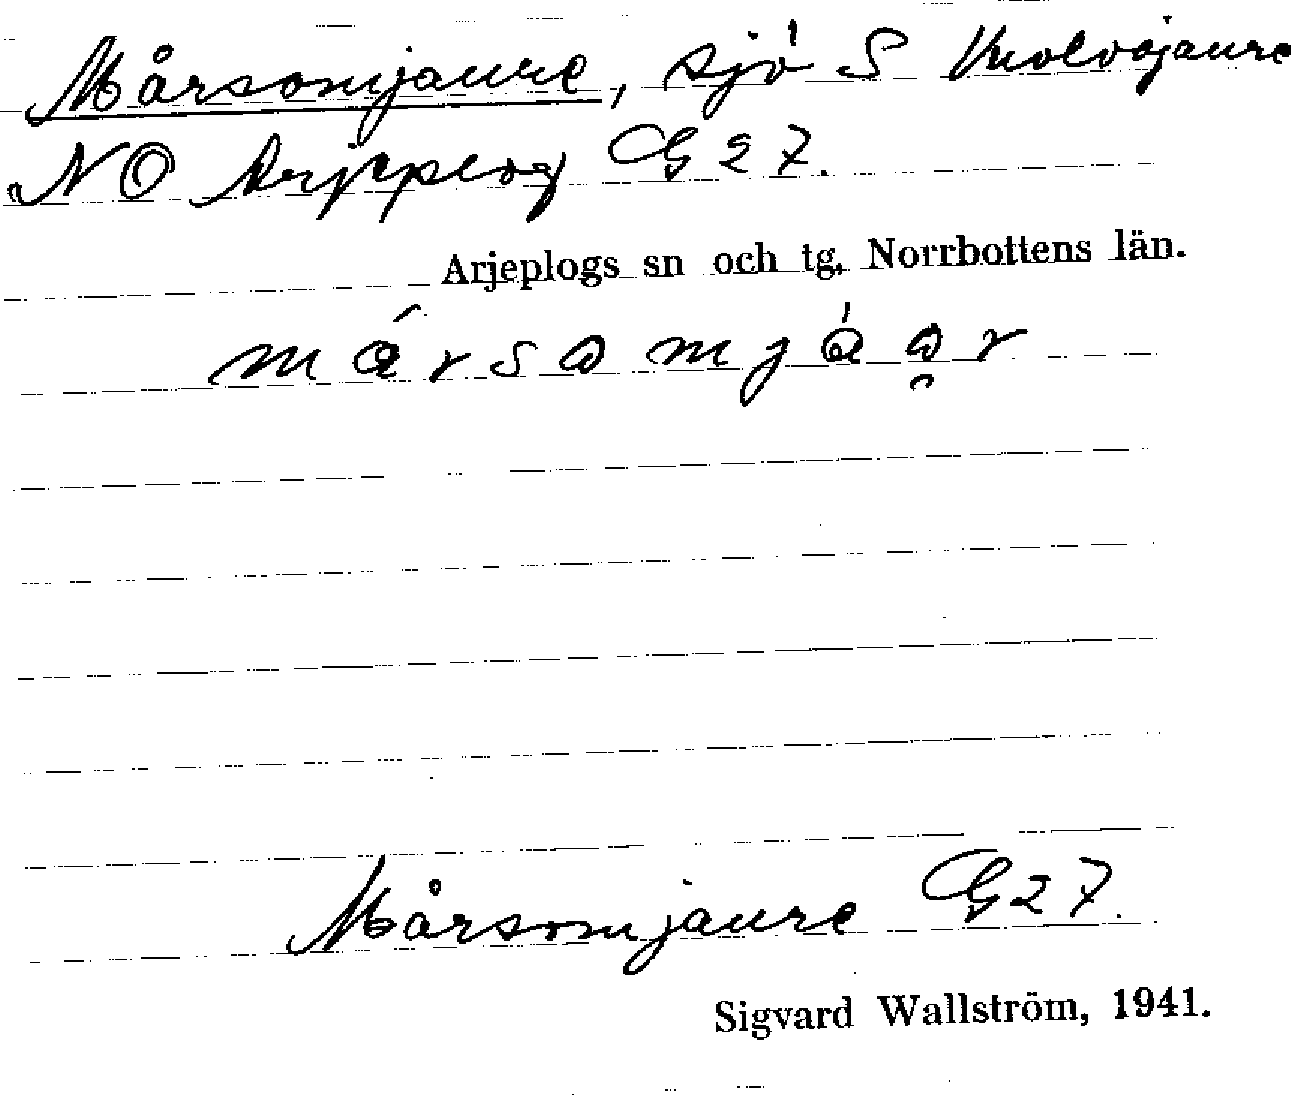 Mårsomjaure, sjö S
NO Arjeplog G 27.
Arjeplogs sn och tg, Norrbottens län.
Mårsomjaure G 27.
Sigvard Wallström, 1941.